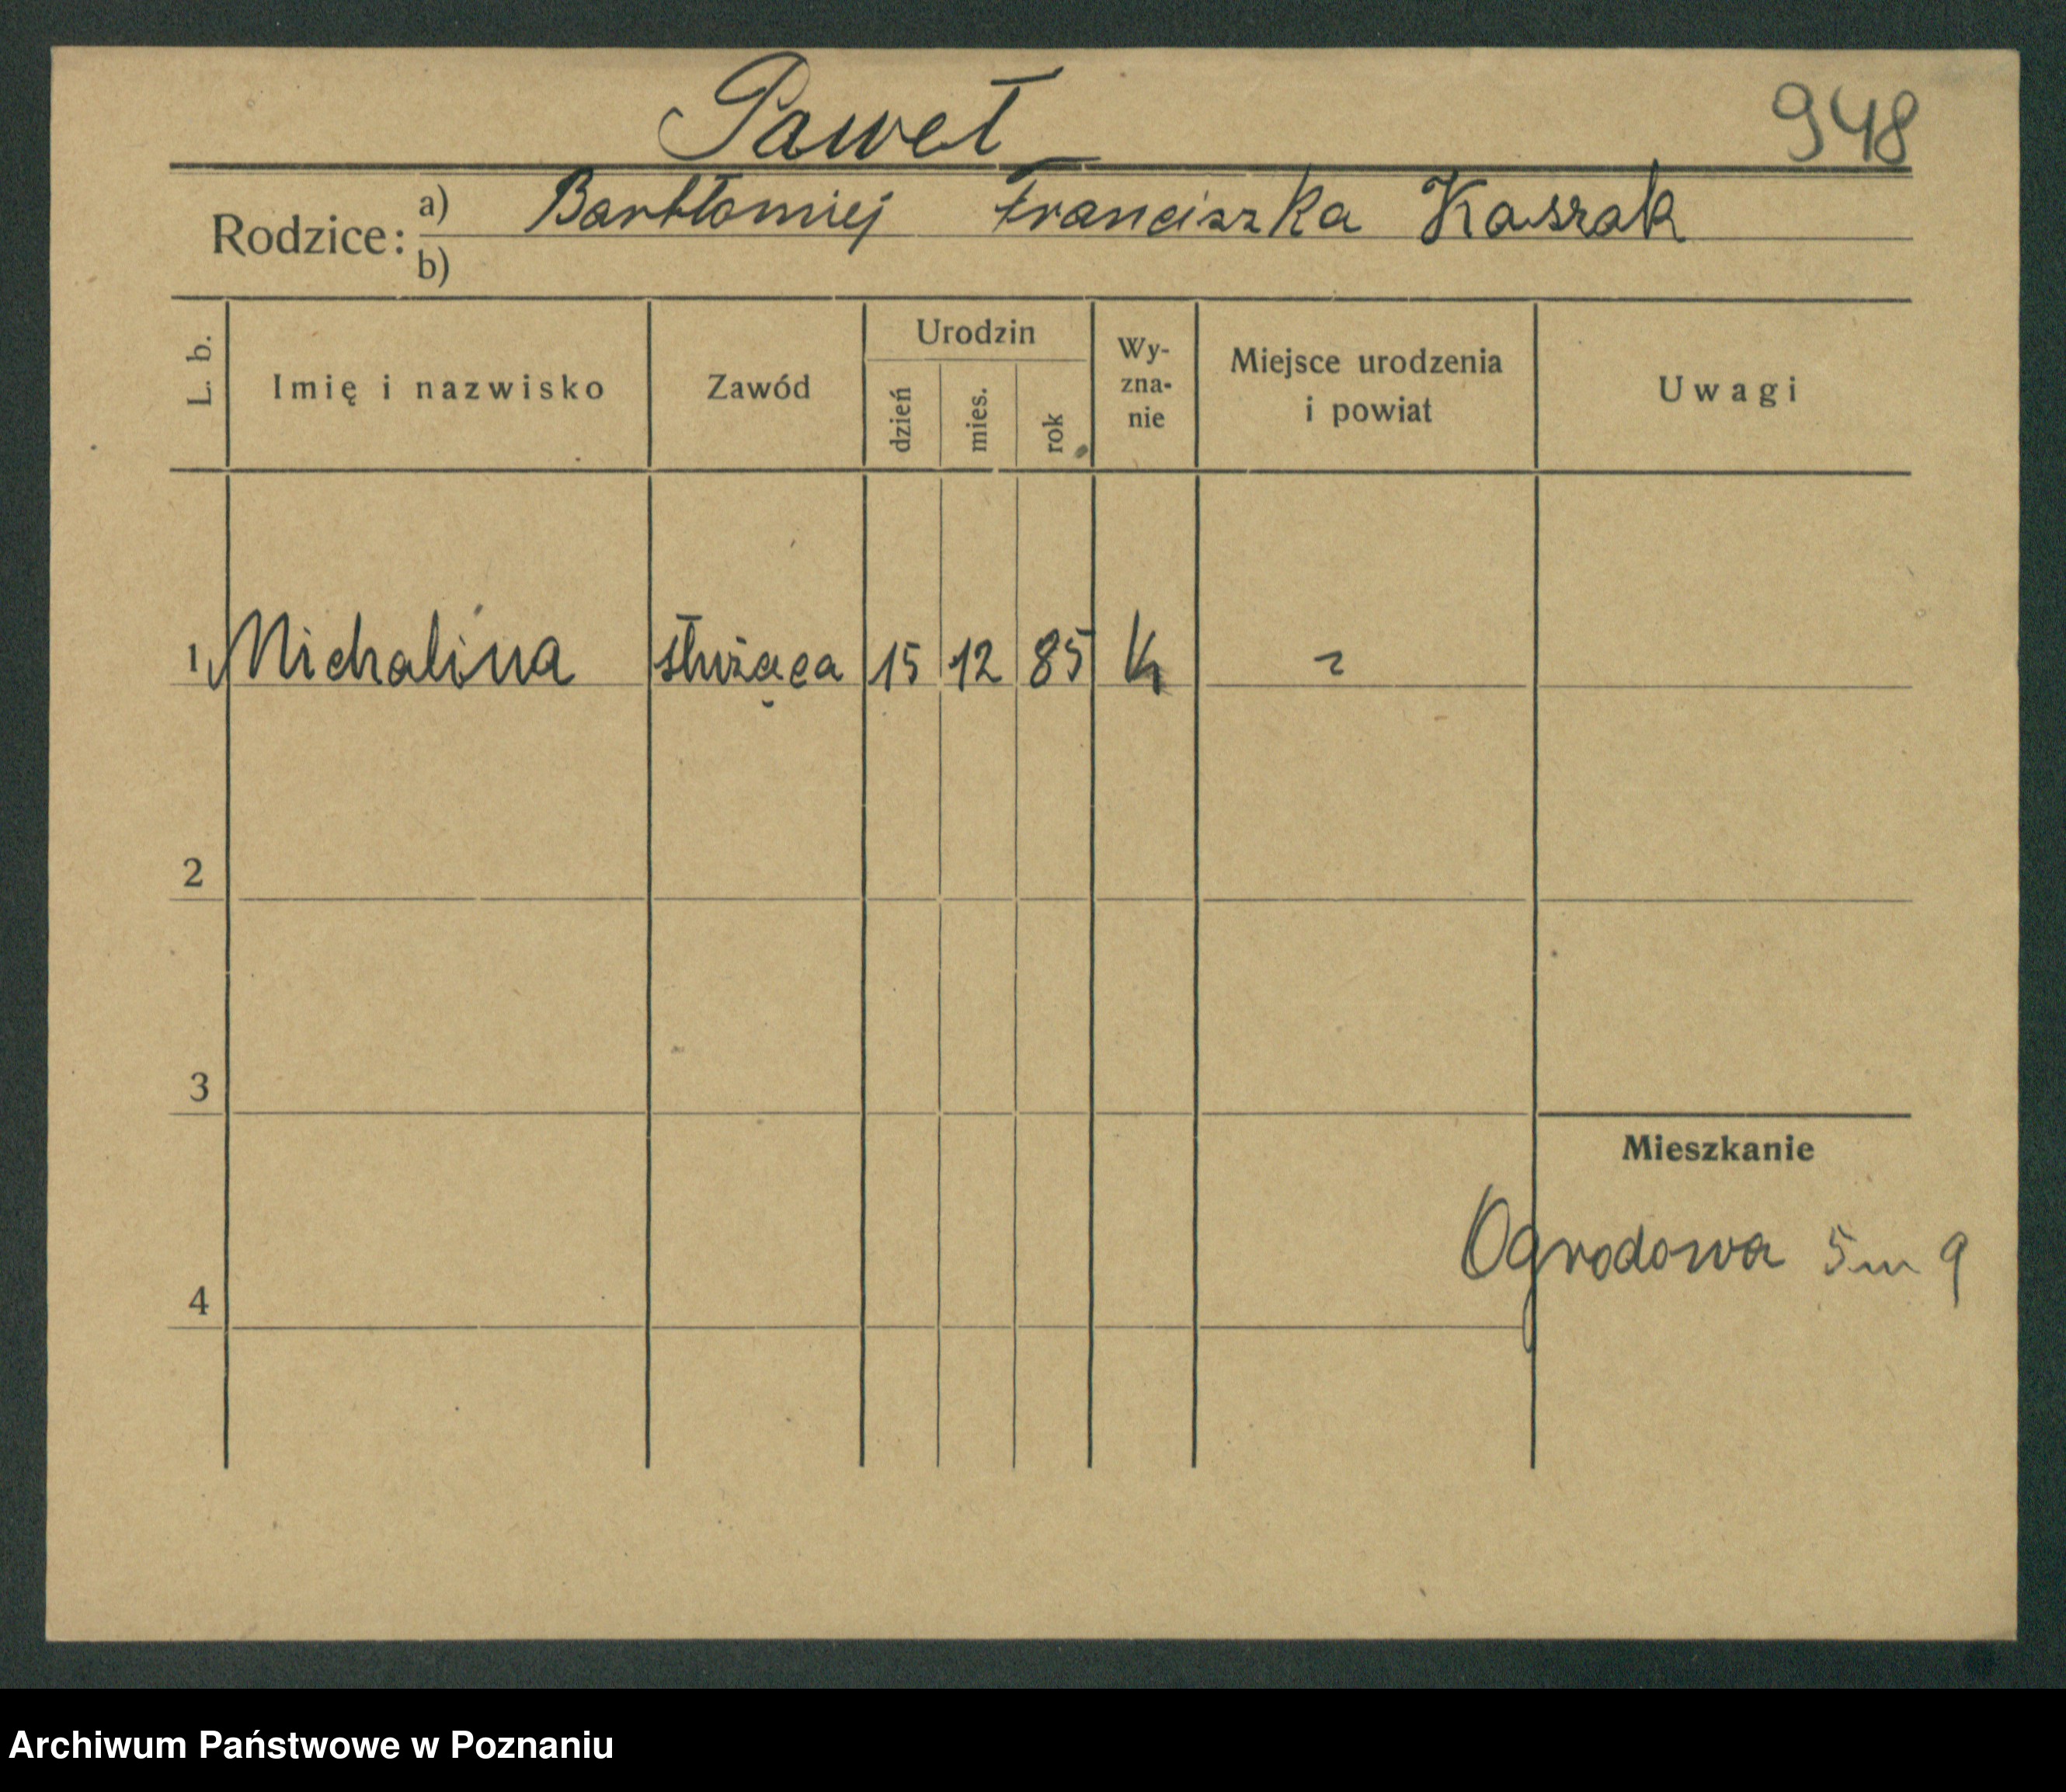 Paweł
948
Rodzice: a) Bartłomiej Franciszka Kaszak
b)
L. b.
Imię i nazwisko
Zawód
Urodzin
dzień
mies.
rok
Wy-
zna-
nie
Miejsce urodzenia
i powiat
Uwagi
1, Michalina służąca 15 12 85 K
2
3
Mieszkanie
Ogrodowa 5 m 9
4
Archiwum Państwowe w Poznaniu